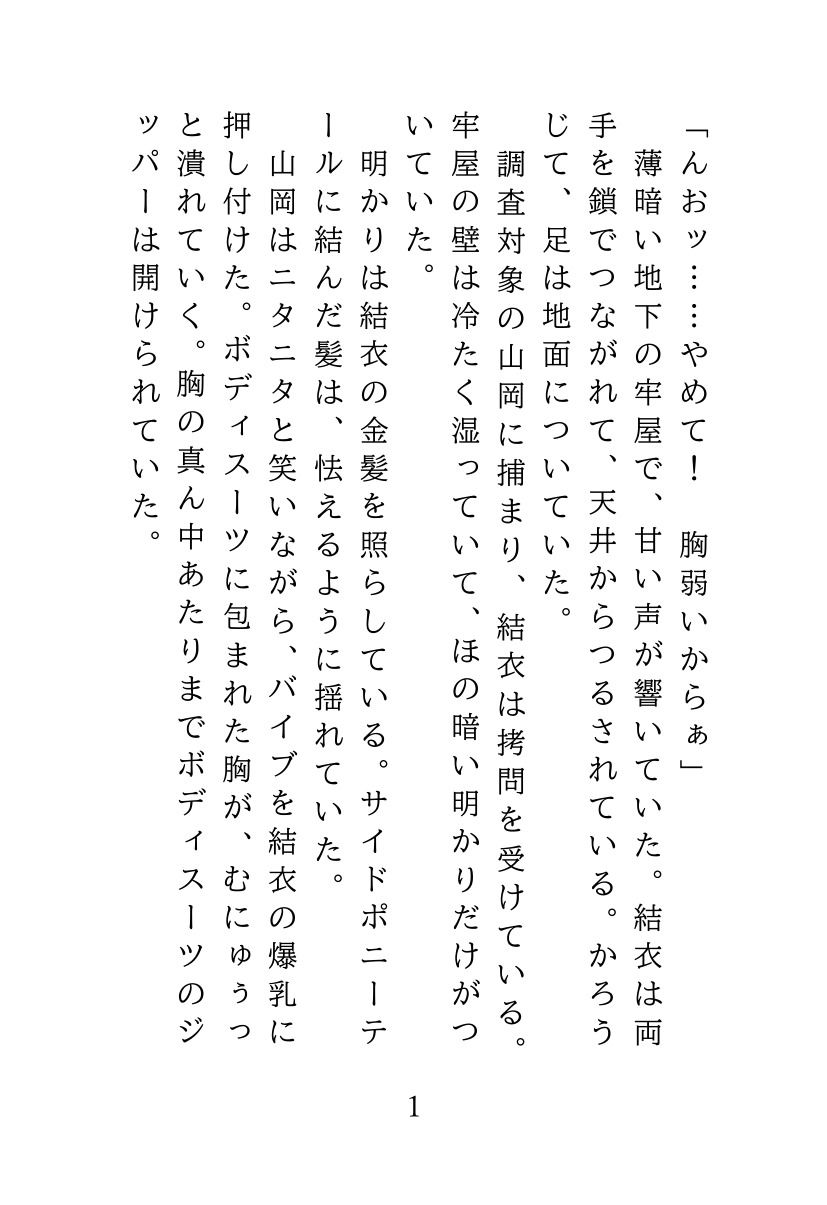 「んおッ……やめて！　胸弱いからぁ」
　薄暗い地下の牢屋で、甘い声が響いていた。結衣は両
手を鎖でつながれて、天井からつるされている。かろう
じて、足は地面についていた。
　調査対象の山岡に捕まり、結衣は拷問を受けている。
牢屋の壁は冷たく湿っていて、ほの暗い明かりだけがつ
いていた。
　明かりは結衣の金髪を照らしている。サイドポニーテ
ールに結んだ髪は、怯えるように揺れていた。
　山岡はニタニタと笑いながら、バイブを結衣の爆乳に
押し付けた。ボディスーツに包まれた胸が、むにゅぅっ
と潰れていく。胸の真ん中あたりまでボディスーツのジ
ッパーは開けられていた。
1